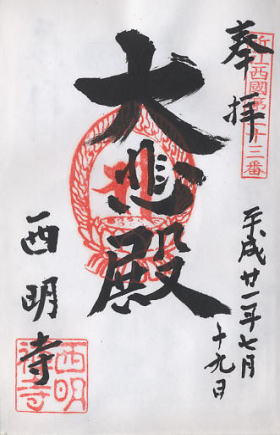 近江西國第二十三番
奉拝
平成廿一年七月
十九日
大悲殿
西明寺
西明
禅寺